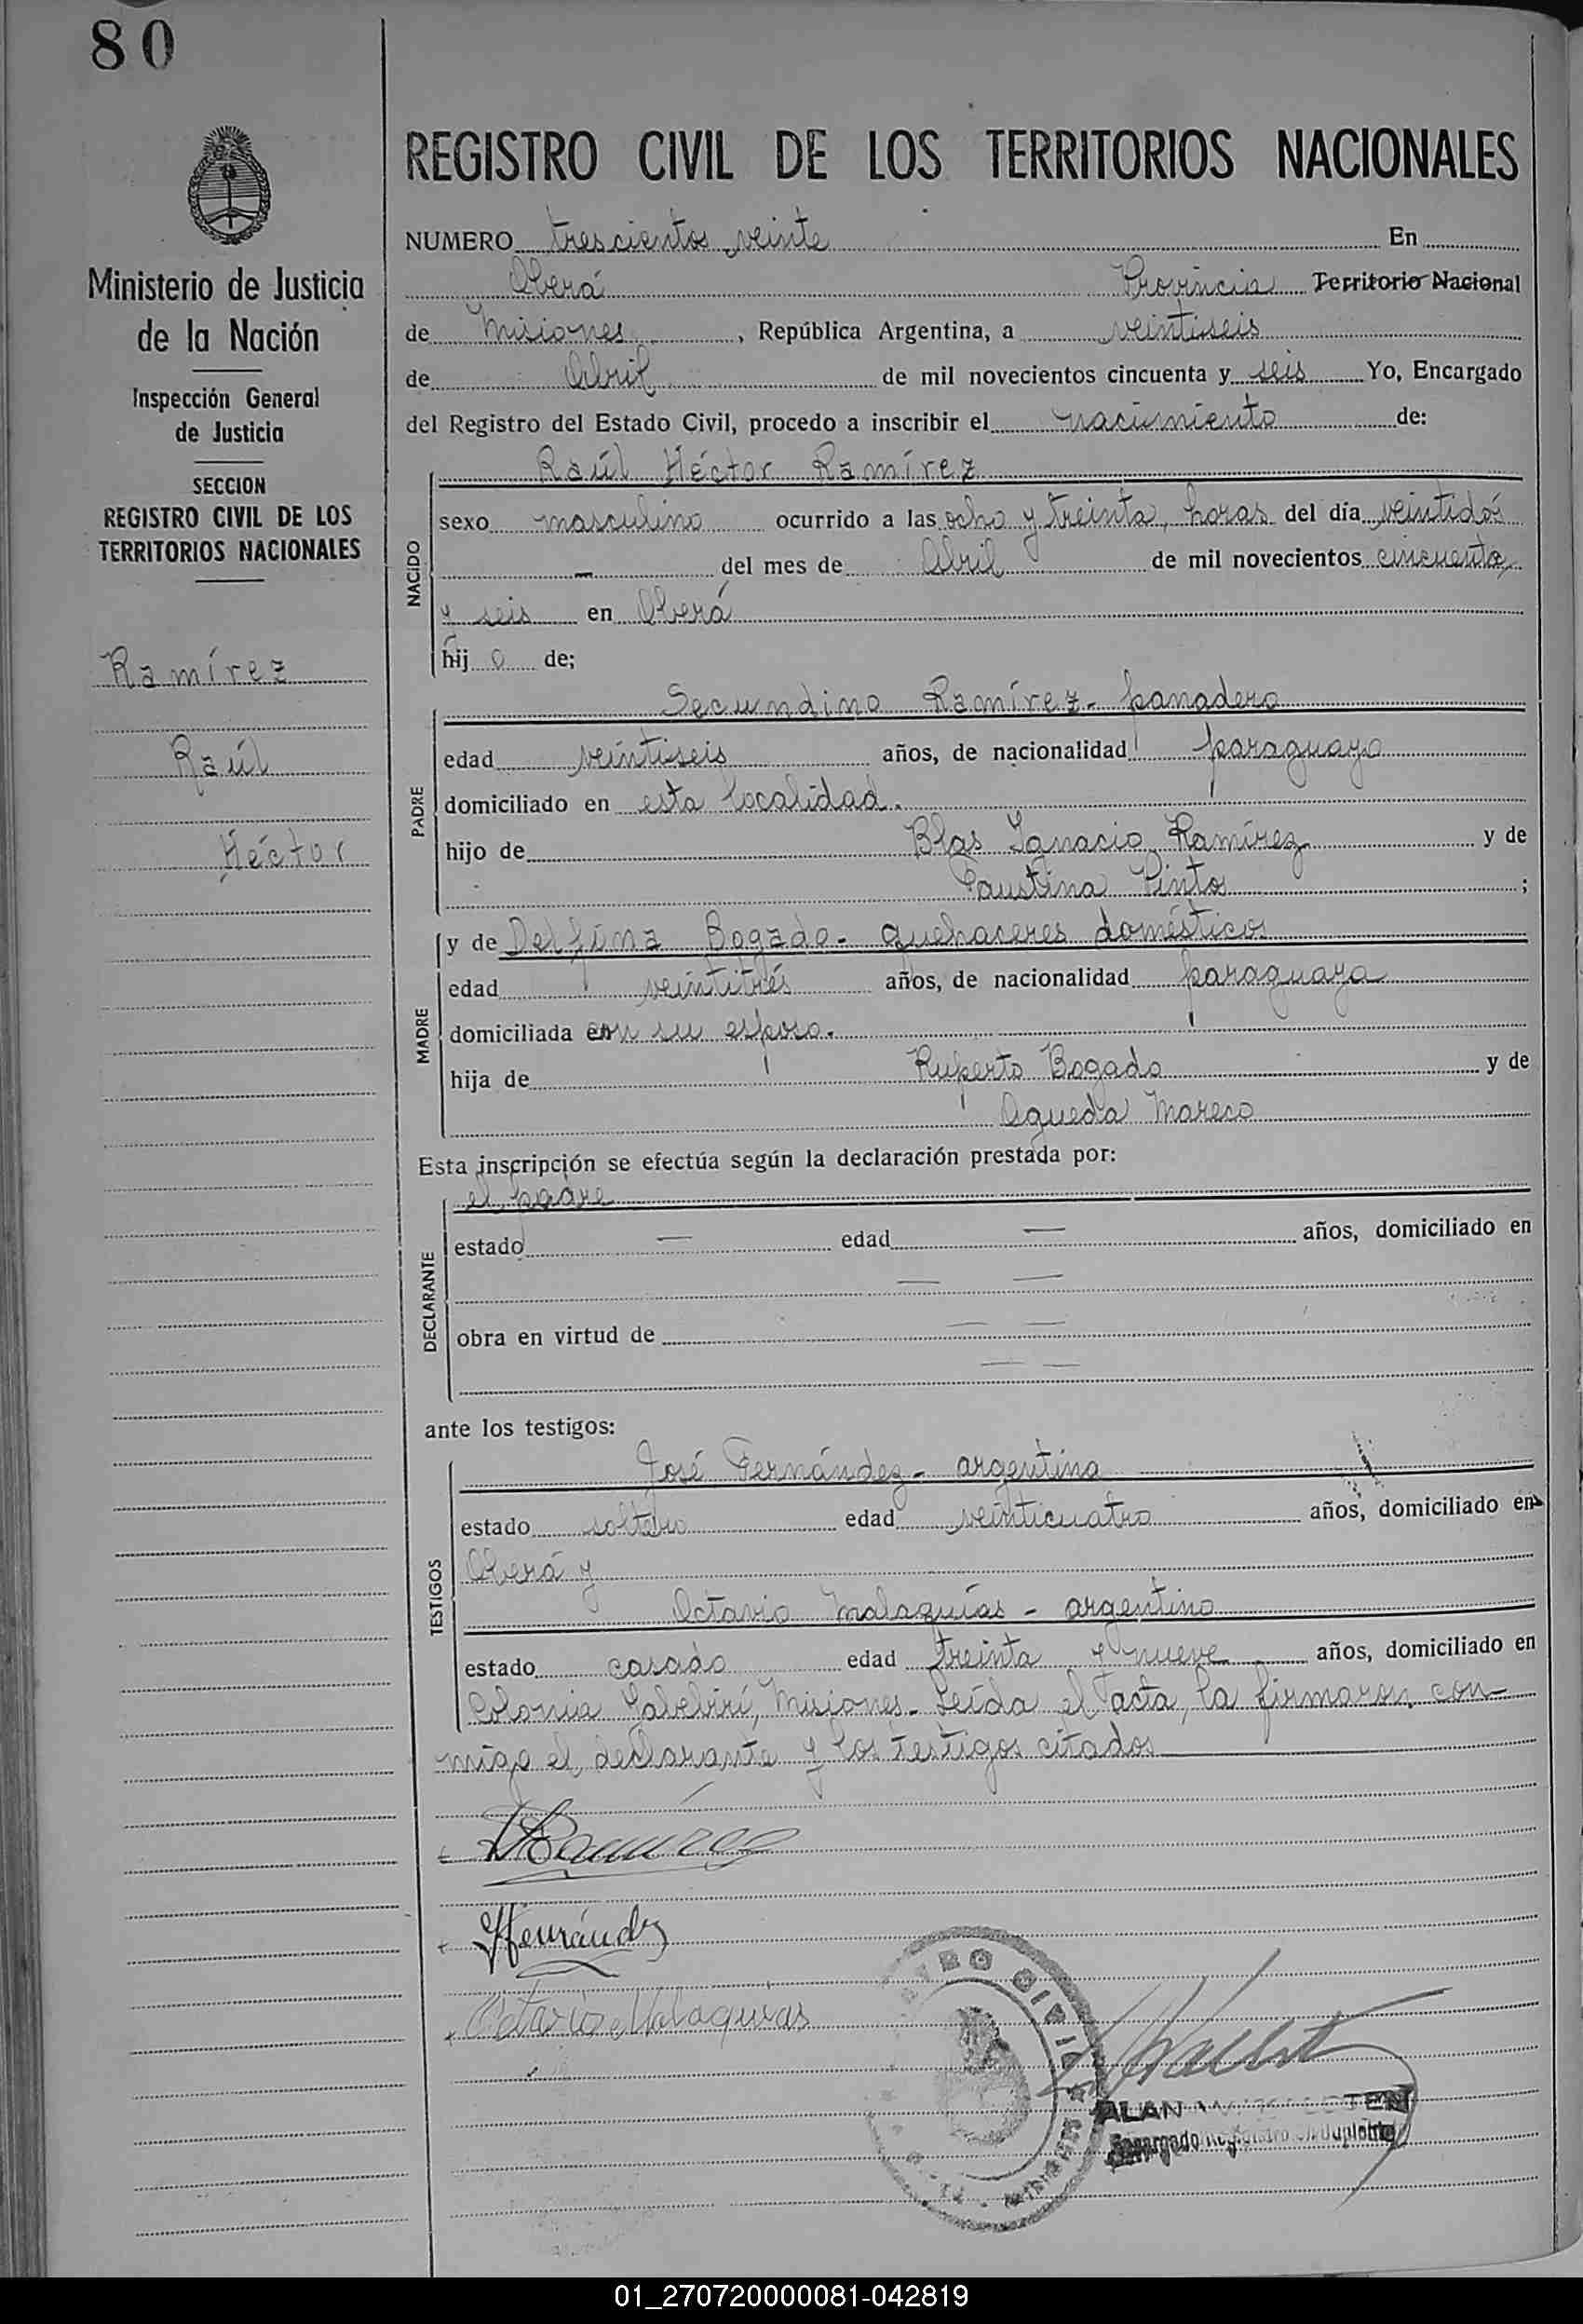 80
REGISTRO CIVIL DE LOS TERRITORIOS NACIONALES
Ministerio de Justicia
de la Nación
Inspección General
de Justicia
SECCION
REGISTRO CIVIL DE LOS
TERRITORIOS NACIONALES
Ramírez
Raúl
Héctor
NUMERO trescientos veinte En
Oberá Provincia Territorio Nacional
de Misiones, República Argentina, a veintiseis
de Abril de mil novecientos cincuenta y seis Yo, Encargado
del Registro del Estado Civil, procedo a inscribir el nacimiento de:
NACIDO
Raúl Héctor Ramírez
sexo masculino ocurrido a las ocho y treinta, horas del día veintidós
— del mes de Abril de mil novecientos cincuenta
y seis en Oberá
hij o de;
PADRE
Secundino Ramírez - panadero
edad veintiseis años, de nacionalidad paraguayo
domiciliado en esta localidad.
hijo de Blas Ignacio Ramírez y de
Faustina Pinto ;
MADRE
y de Delfina Bogado - quehaceres domésticos
edad veintitrés años, de nacionalidad paraguaya
domiciliada con su esposo.
hija de Ruperto Bogado y de
Agueda Mareco
Esta inscripción se efectúa según la declaración prestada por:
DECLARANTE
el padre
estado — edad — años, domiciliado en
— —
obra en virtud de — —
— —
ante los testigos:
TESTIGOS
José Fernández - argentino
estado soltero edad veinticuatro años, domiciliado en
Oberá y
Octavio Malaquías - argentino
estado casado edad treinta y nueve años, domiciliado en
Colonia Yabebirí, Misiones. Leída el acta, la firmaron con-
migo el declarante y los testigos citados
Ramírez
Fernández
Octavio Malaquías
CIVIL
ALAN
Encargado
01_270720000081-042819